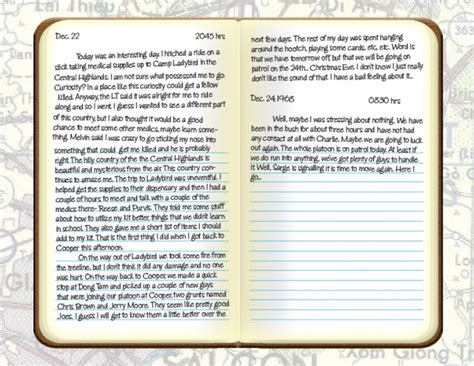 Dec. 22 2045 hrs
Today was an interesting day. I hitched a ride on a
slick taking medical supplies up to Camp Ladybird in the
Central Highlands. I am not sure what possessed me to go.
Curiosity? In a place like this curiosity could get a fellow
killed. Anyway, the LT said it was alright for me to ride
along and so I went. I guess I wanted to see a different part
of this country, but I also thought it would be a good
chance to meet some other medics, maybe learn some-
thing. Melvin said I was crazy to go sticking my nose into
something that could get me killed and he is probably
right. The hilly country of the the Central Highlands is
beautiful and mysterious from the air. This country con-
tinues to amaze me. The trip to Ladybird was uneventful. I
helped get the supplies to their dispensary and then I had a
couple of hours to meet and talk with a couple of the
medics there- Reese and Purvis. They told me some stuff
about how to utilize my kit better, things that we didn't learn
in school. They also gave me a short list of items I should
add to my kit. That is the first thing I did when I got back to
Cooper this afternoon.
On the way out of Ladybird we took some fire from
the treeline, but I don't think it did any damage and no one
was hurt. On the way back to Cooper we made a quick
stop at Dong Tam and picked up a couple of new guys
that were joining our platoon at Cooper, two grunts named
Chris Brown and Jerry Moore. They seem like pretty good
Joes. I guess I will get to know them a little better over the
next few days. The rest of my day was spent hanging
around the hootch, playing some cards, etc, etc. Word is
that we have tomorrow off, but that we will be going on
patrol on the 24th. Christmas Eve. I don't know I just really
don't like the sound of that. I have a bad feeling about it.
Dec. 24, 1968 0830 hrs
Well, maybe I was stressing about nothing. We have
been in the bush for about three hours and have not had
any contact at all with Charlie. Maybe we are going to luck
out again. The whole platoon is on patrol today. At least if
we do run into anything, we've got plenty of guys to handle
it. Well, Sarge is signalling it is time to move again. Here I
go...
Lai Thieu
Di An
SAIGON
Xom Giong